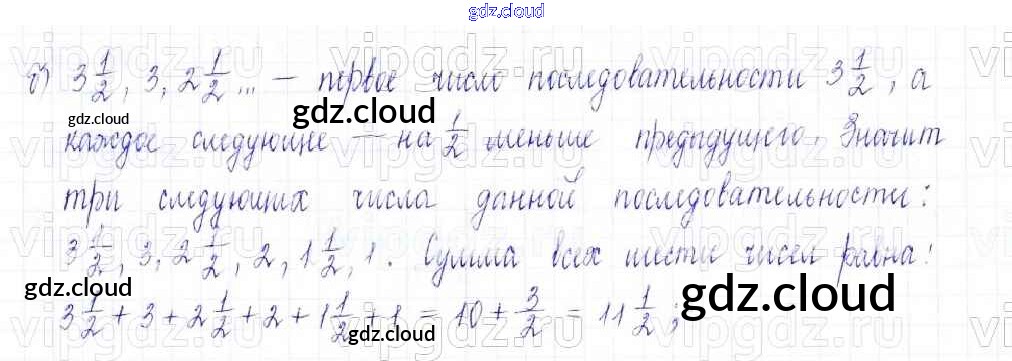 gdz.cloud
б) 3 1/2, 3, 2 1/2 ... — первое число последовательности 3 1/2, а
gdz.cloud
каждое следующее — на 1/2 меньше предыдущего. Значит
три следующих числа данной последовательности:
3 1/2, 3, 2 1/2, 2, 1 1/2, 1. Сумма всех шести чисел равна:
gdz.cloud gdz.cloud gdz.cloud
3 1/2 + 3 + 2 1/2 + 2 + 1 1/2 + 1 = 10 + 3/2 = 11 1/2;